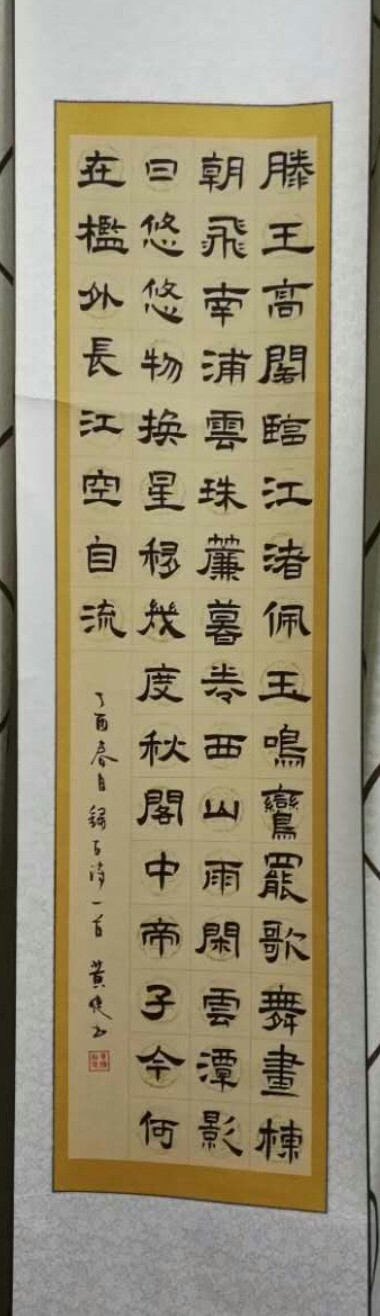 滕王高閣臨江渚佩玉鳴鸞罷歌舞畫棟
朝飛南浦雲珠簾暮卷西山雨閑雲潭影
日悠悠物換星移幾度秋閣中帝子今何
在檻外長江空自流
丁酉春月錄古詩一首 黄俊书